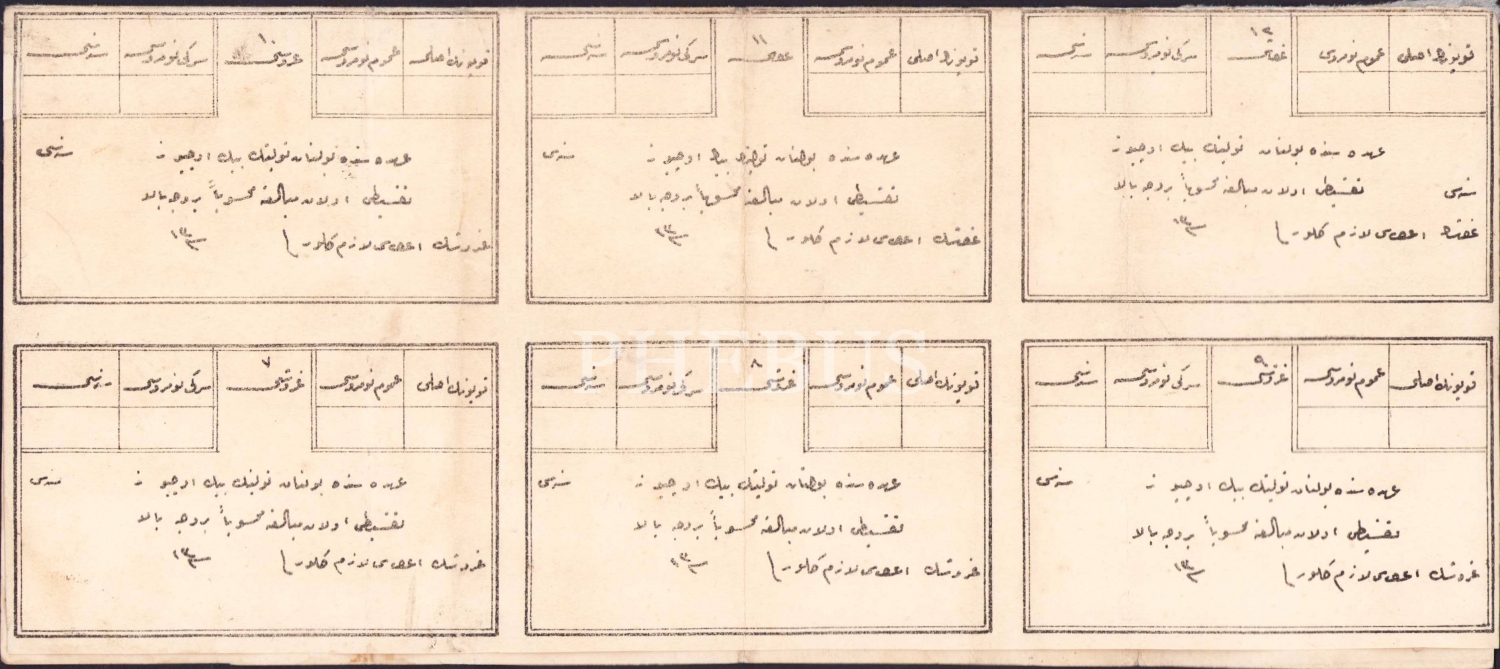 ١٢
قوپونك اصلی عموم نومروسی غروشی سركی نومروسی سنه‌سی
عهده سنده بولنان تولیتك بیك اوچیوز
سنه‌سی تقسیطی اولان مبالغه محسوباً بروجه بالا
غروشك اعطاسی لازم كلور
١٣٣
١١
قوپونك اصلی عموم نومروسی غروشی سركی نومروسی سنه‌سی
عهده سنده بولنان تولیتك بیك اوچیوز سنه‌سی
تقسیطی اولان مبالغه محسوباً بروجه بالا
غروشك اعطاسی لازم كلور
١٣٣
١٠
قوپونك اصلی عموم نومروسی غروشی سركی نومروسی سنه‌سی
عهده سنده بولنان تولیتك بیك اوچیوز سنه‌سی
تقسیطی اولان مبالغه محسوباً بروجه بالا
غروشك اعطاسی لازم كلور
١٣٣
٩
قوپونك اصلی عموم نومروسی غروشی سركی نومروسی سنه‌سی
عهده سنده بولنان تولیتك بیك اوچیوز سنه‌سی
تقسیطی اولان مبالغه محسوباً بروجه بالا
غروشك اعطاسی لازم كلور
١٣٣
٨
قوپونك اصلی عموم نومروسی غروشی سركی نومروسی سنه‌سی
عهده سنده بولنان تولیتك بیك اوچیوز سنه‌سی
تقسیطی اولان مبالغه محسوباً بروجه بالا
غروشك اعطاسی لازم كلور
١٣٣
٧
قوپونك اصلی عموم نومروسی غروشی سركی نومروسی سنه‌سی
عهده سنده بولنان تولیتك بیك اوچیوز سنه‌سی
تقسیطی اولان مبالغه محسوباً بروجه بالا
غروشك اعطاسی لازم كلور
١٣٣
PHEBUS